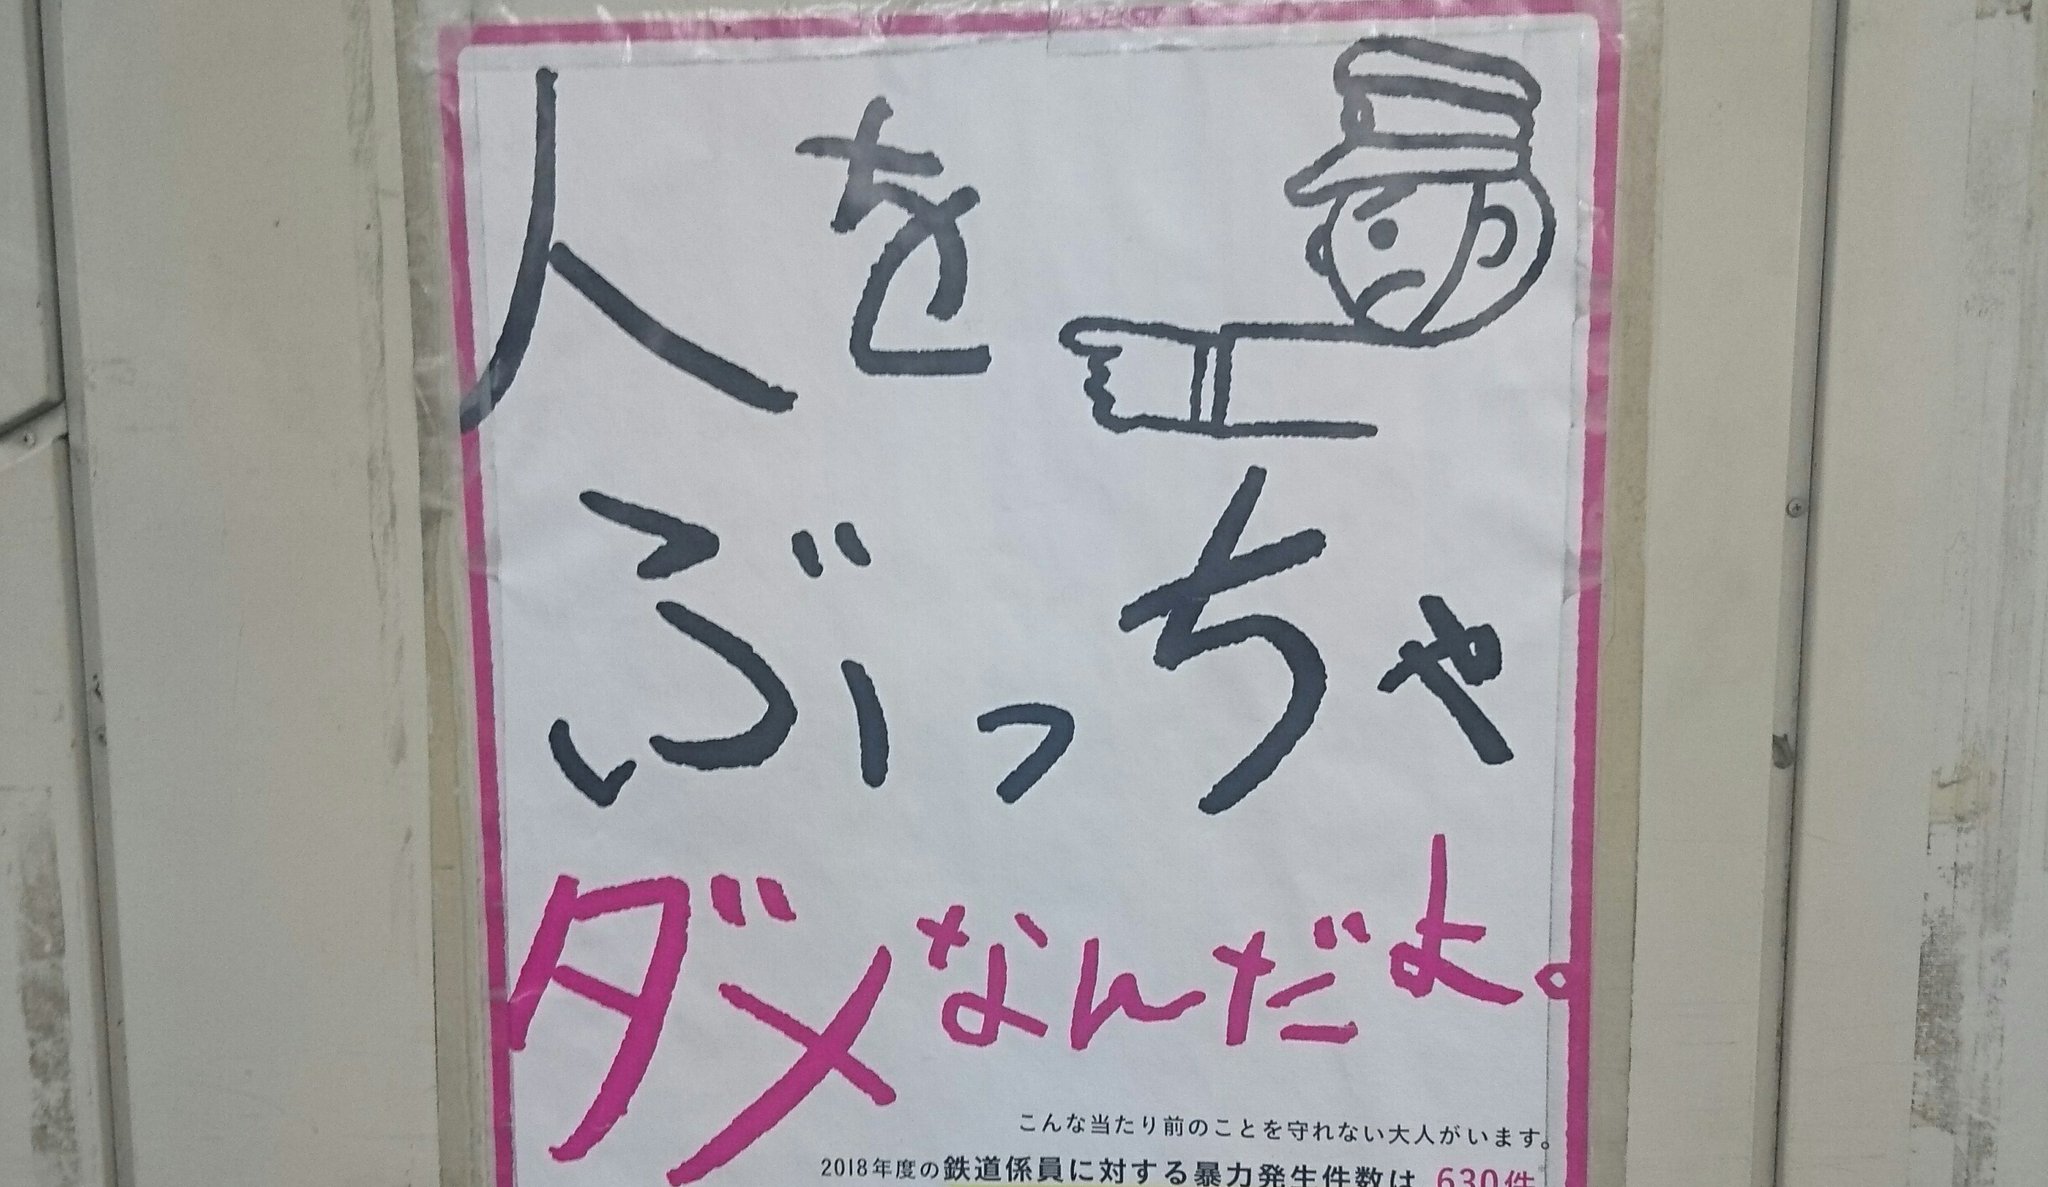 人を
ぶっちゃ
ダメなんだよ。
こんな当たり前のことを守れない大人がいます。
2018年度の鉄道係員に対する暴力発生件数は 630件